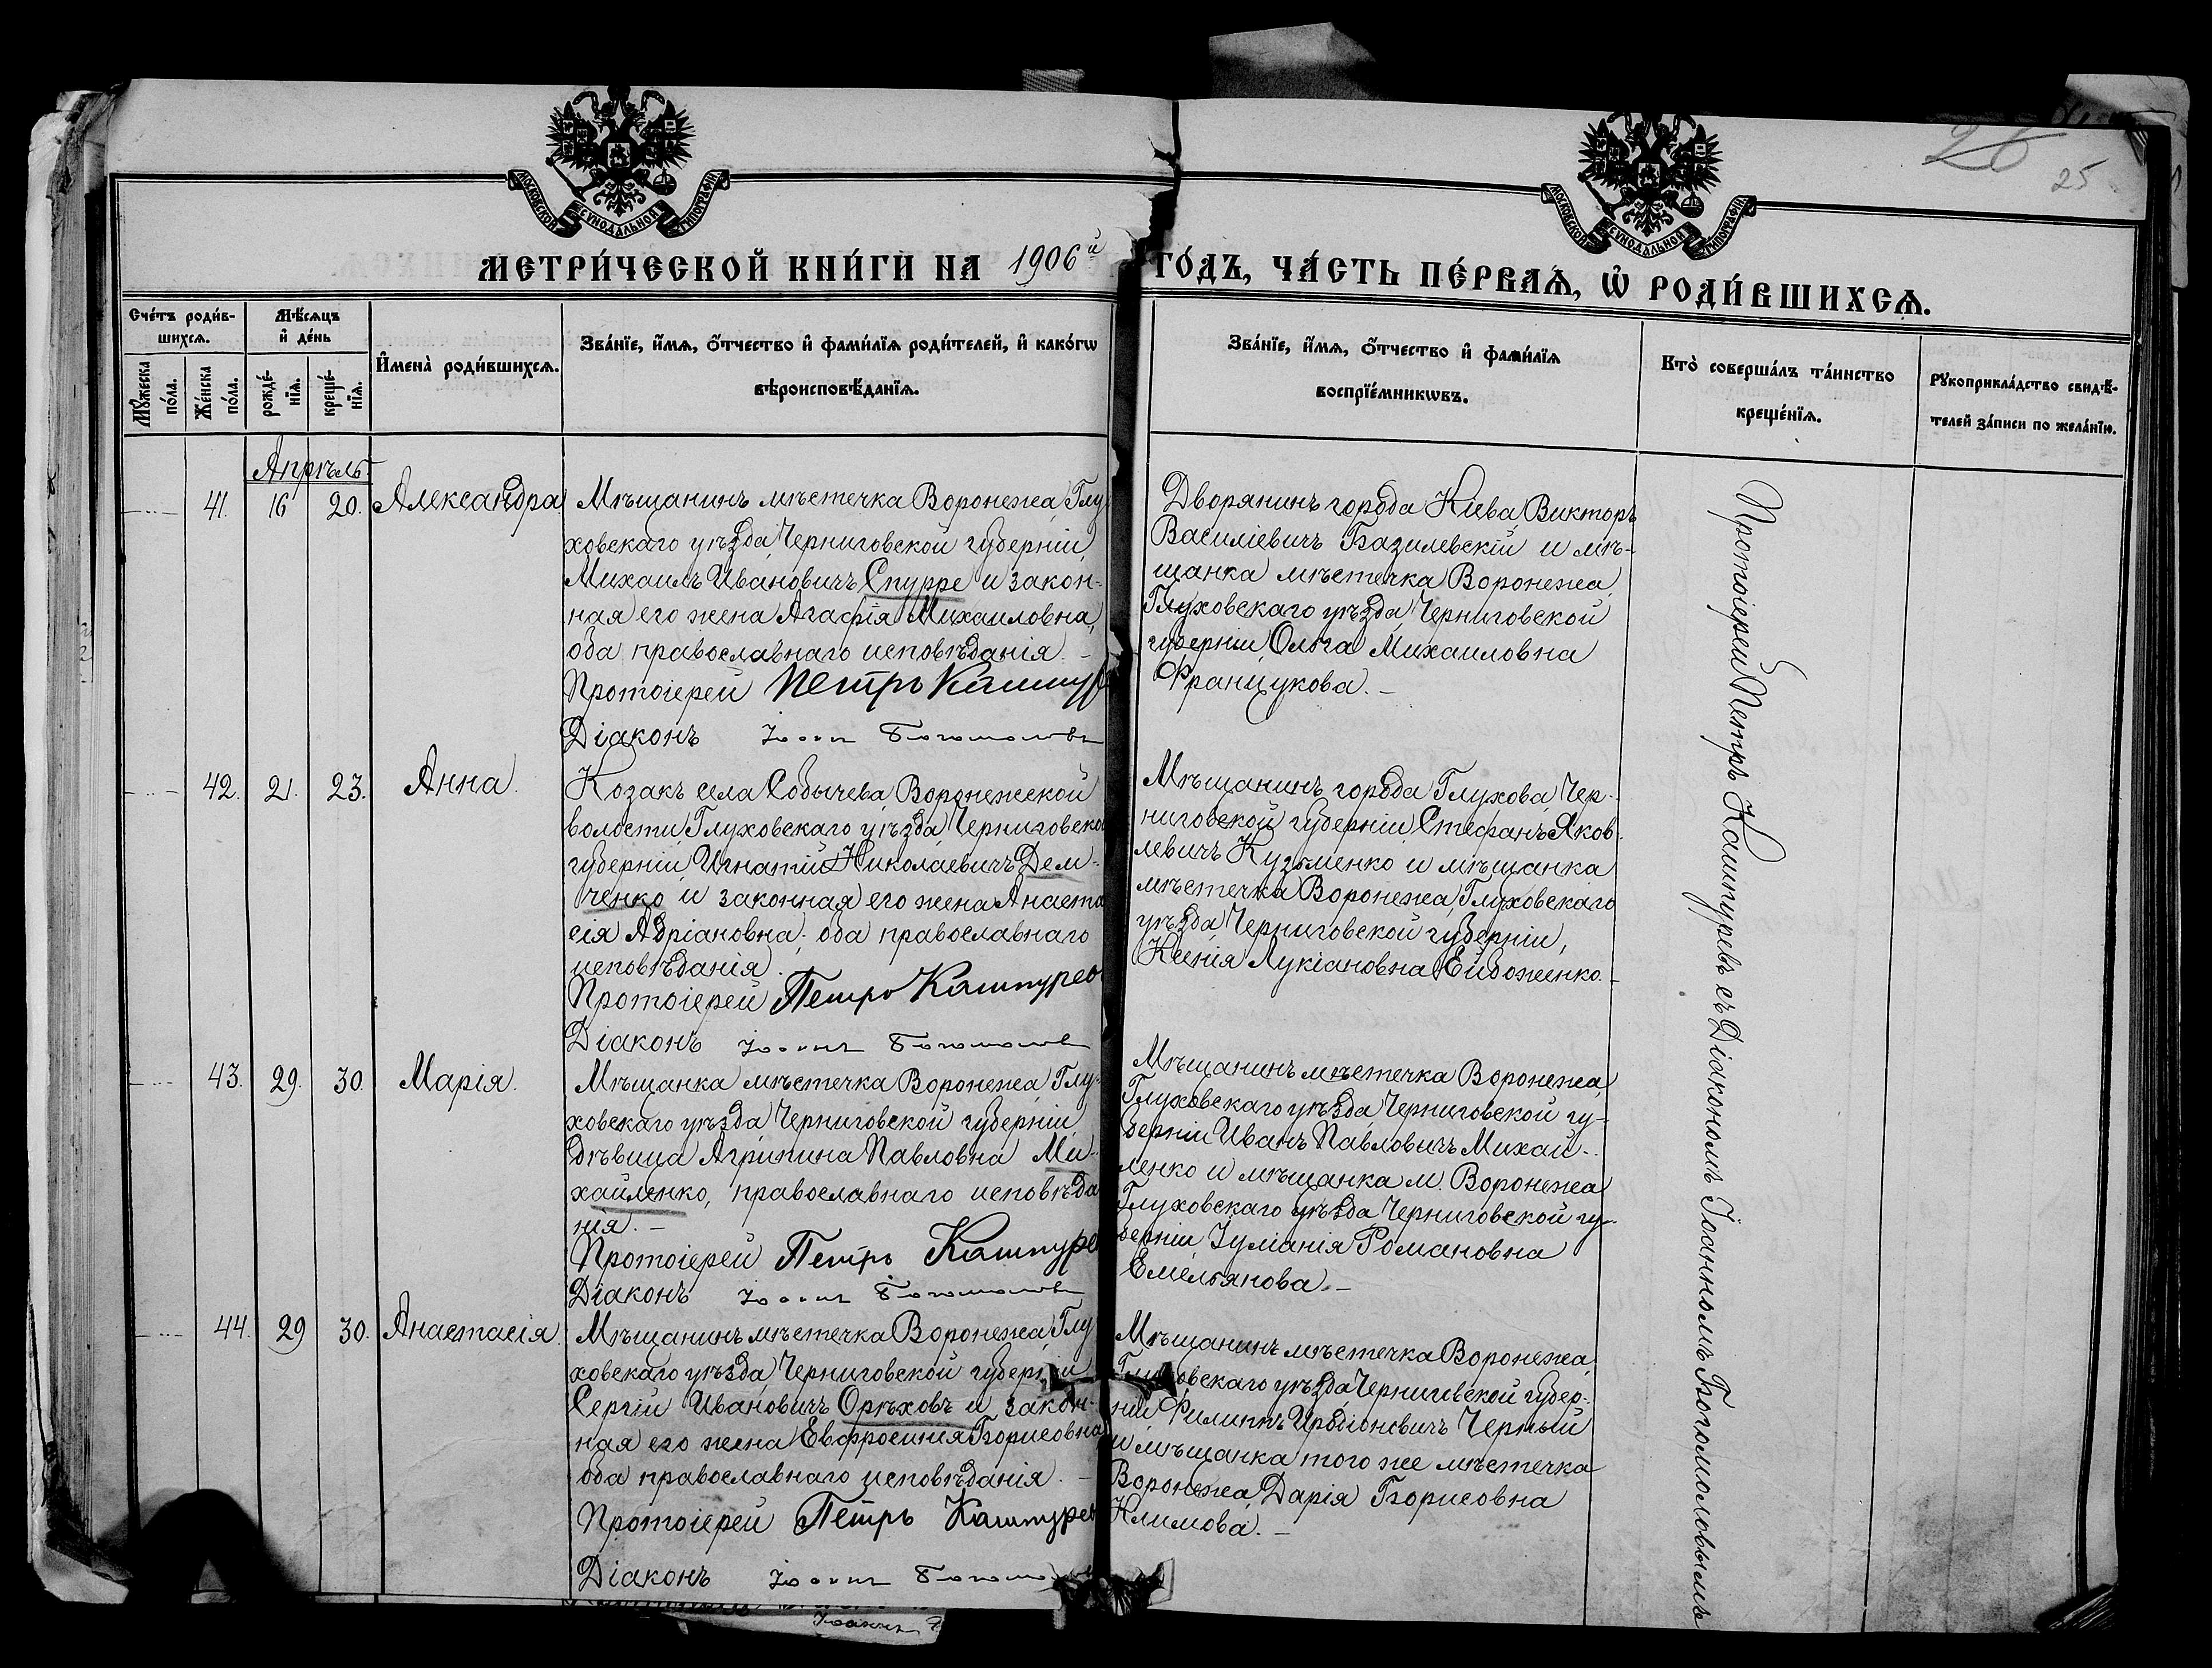 26
25
МОСКОВСКОЙ СѴНОДАЛЬНОЙ ТИПОГРАФІИ
МОСКОВСКОЙ СѴНОДАЛЬНОЙ ТИПОГРАФІИ
МЕТРИ́ЧЕСКОЙ КНИ́ГИ НА 1906й ГО́ДЪ, ЧА́СТЬ ПЕ́РВАѦ, Ѡ҆ РОДИ́ВШИХСѦ.
Сче́тъ роди́в-
шихсѧ.
Мꙋ́жеска по́ла.
Же́нска по́ла.
Мѣ́сѧцъ
и҆ де́нь
рожде́-
нїѧ.
креще́-
нїѧ.
И҆мена̀ роди́вшихсѧ.
Зва́нїе, и҆́мѧ, ѻ҆́тчество и҆ фами́лїѧ роди́телей, и҆ како́гѡ
вѣроисповѣ́данїѧ.
Зва́нїе, и҆́мѧ, ѻ҆́тчество и҆ фами́лїѧ
воспрїе́мникѡвъ.
Кто̀ соверша́лъ та́инство
креще́нїѧ.
Рꙋкоприкла́дство свидѣ́-
телей за́писи по жела́нїю.
Апрѣль.
41. 16 20. Александра
Мѣщанинъ мѣстечка Воронежа, Глу
ховскаго уѣзда, Черниговской губерніи,
Михаилъ Ивановичъ Спурре и закон-
ная его жена Агафія Михаиловна,
оба православнаго исповѣданія. –
Протоіерей Петръ Кашпур
Діаконъ Іоаннъ Богомоловъ
Дворянинъ города Кіева, Викторъ
Василіевичъ Базилевскій и мѣ-
щанка мѣстечка Воронежа,
Глуховскаго уѣзда, Черниговской
губерніи, Ольга Михаиловна
Францукова. –
42. 21. 23. Анна.
Козакъ села Собычева, Воронежской
волости, Глуховскаго уѣзда, Черниговско
губерніи, Игнатій Николаевичъ Дем-
ченко и законная его жена Анаста
сія Адріановна; оба православнаго
исповѣданія.
Протоіерей Петръ Кашпурев
Діаконъ Іоаннъ Богомолов
Мѣщанинъ города Глухова, Чер-
ниговской губерніи, Стефанъ Яков-
левичъ Кузьменко и мѣщанка
мѣстечка Воронежа, Глуховскаго
уѣзда, Черниговской губерніи,
Ксенія Лукіановна Ейбоженко. –
43. 29. 30. Марія.
Мѣщанка мѣстечка Воронежа, Глу-
ховскаго уѣзда, Черниговской губерніи
дѣвица Агрипина Павловна Ми-
хайленко, православнаго исповѣда
нія. –
Протоіерей Петръ Кашпуре
Діаконъ Іоаннъ Богомоловъ
Мѣщанинъ мѣстечка Воронежа,
Глуховскаго уѣзда, Черниговской гу-
берніи Иванъ Павловичъ Михай-
ленко и мѣщанка м. Воронежа
Глуховскаго уѣзда, Черниговской гу-
берніи, Іуліанія Романовна
Емельянова. –
44. 29 30. Анастасія.
Мѣщанинъ мѣстечка Воронежа, Глу
ховскаго уѣзда, Черниговской губерніи
Сергій Ивановичъ Орѣховъ и закон-
ная его жена Евфросинія Борисовна
оба православнаго исповѣданія. –
Протоіерей Петръ Кашпурев
Діаконъ Іоаннъ Богомол
Мѣщанинъ мѣстечка Воронежа,
Глуховскаго уѣзда, Черниговской губер-
ніи, Филиппъ Иродіоновичъ Черный
и мѣщанка того же мѣстечка
Воронежа, Дарія Борисовна
Климова. –
Протоіерей Петръ Кашпуревъ съ Діакономъ Іоанномъ Богомоловымъ
Іоаннъ